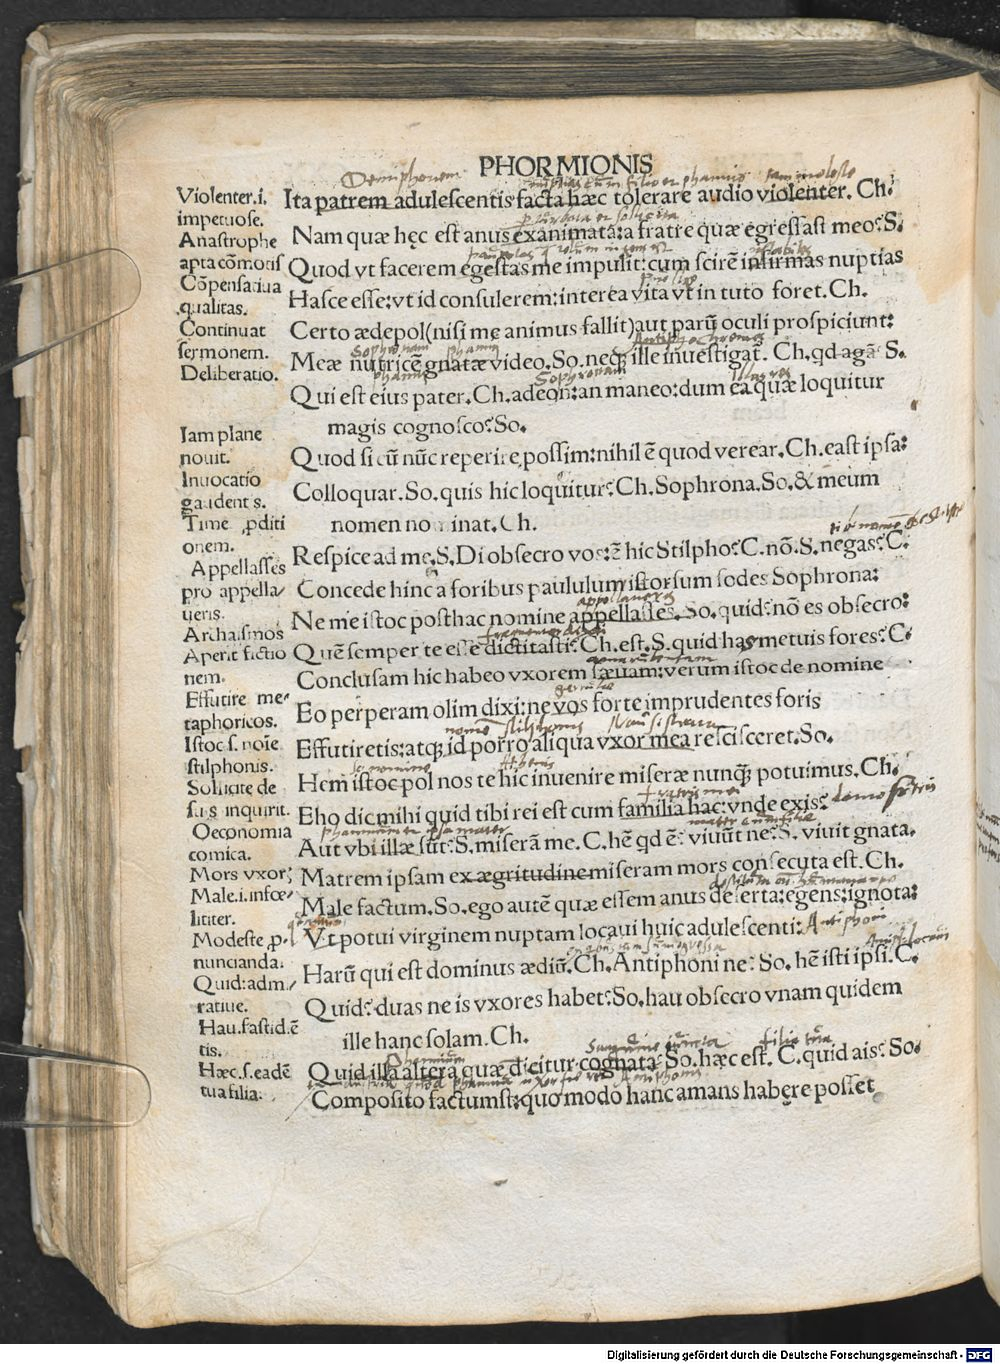 PHORMIONIS
Violenter.i.
impetuose.
Anastrophe
apta cōmotis
Cōpensatiua
qualitas.
Continuat
sermonem.
Deliberatio.
Iam plane
nouit.
Inuocatio
gaudentis.
Time ꝓditi
onem.
Appellasses
pro appella/
ueris.
Archaismos
Aperit fictio
nem.
Effutire me/
taphoricos.
Istoc.s.noīe
stilphonis.
Sollicite de
suis inquirit.
Oeconomia
comica.
Mors vxor;
Male.i.infœ/
liciter.
Modeste ꝓ.
nuncianda.
Quid:adm./
ratiue.
Hau.fastid.ē
tis.
Hæc.s.eadē
tua filia.
Demiphonem
Ita patrem adulescentis facta hæc tolerare audio violenter. Ch.
Nam quæ hęc est anus exanimata:a fratre quæ egressast meo?S.
Quod vt facerem egestas me impulit:cum scirē infirmas nuptias
Hasce esse:vt id consulerem:interea vita vt in tuto foret.Ch.
Certo ædepol(nisi me animus fallit)aut parū oculi prospiciunt:
Sophronam
Meæ nutricē gnatæ video.So.neqꝫ ille inuestigat. Ch.qd agā? S.
Sophronam
Qui est eius pater.Ch.adeon?:an maneo:dum ea quæ loquitur
magis cognosco?So.
Quod si eū nūc reperire possim:nihil ē quod verear.Ch.east ipsa:
Colloquar.So.quis hic loquitur?Ch.Sophrona.So.& meum
nomen nominat.Ch.
Respice ad me.S.Di obsecro vos:ē hic Stilpho?C.nō.S.negas?C.
Concede hinc a foribus paululum istorsum sodes Sophrona:
appellaueris
Ne me istoc posthac nomine appellasses. So.quid?nō es obsecro:
Quē semper te esse dictitasti?Ch.est.S.quid has metuis fores?C.
Conclusam hic habeo vxorem sæuam:verum istoc de nomine
Eo perperam olim dixi:ne vos forte imprudentes foris
Effutiretis:atqꝫ id porro aliqua vxor mea rescisceret.So.
Athenis
Hem istoc pol nos te hic inuenire miseræ nunqꝫ potuimus.Ch.
Eho dic mihi quid tibi rei est cum familia hac:vnde exis?
Aut vbi illæ sūt?S.miserā me.C.hē qd ē? viuūt ne?S.viuit gnata.
Matrem ipsam ex ægritudine miseram mors consecuta est.Ch.
Male factum.So.ego autē quæ essem anus deserta:egens:ignota:
Vt potui virginem nuptam locaui huic adulescenti: Antiphoni
Harū qui est dominus ædiū.Ch.Antiphoni ne? So.hē isti ipsi.C.
Quid?duas ne is vxores habet?So.hau obsecro vnam quidem
ille hanc solam.Ch.
Quid illa altera quæ dicitur cognata?So.hæc est. C.quid ais?So.
Composito factumst:quo modo hanc amans habere posset
Digitalisierung gefördert durch die Deutsche Forschungsgemeinschaft - DFG